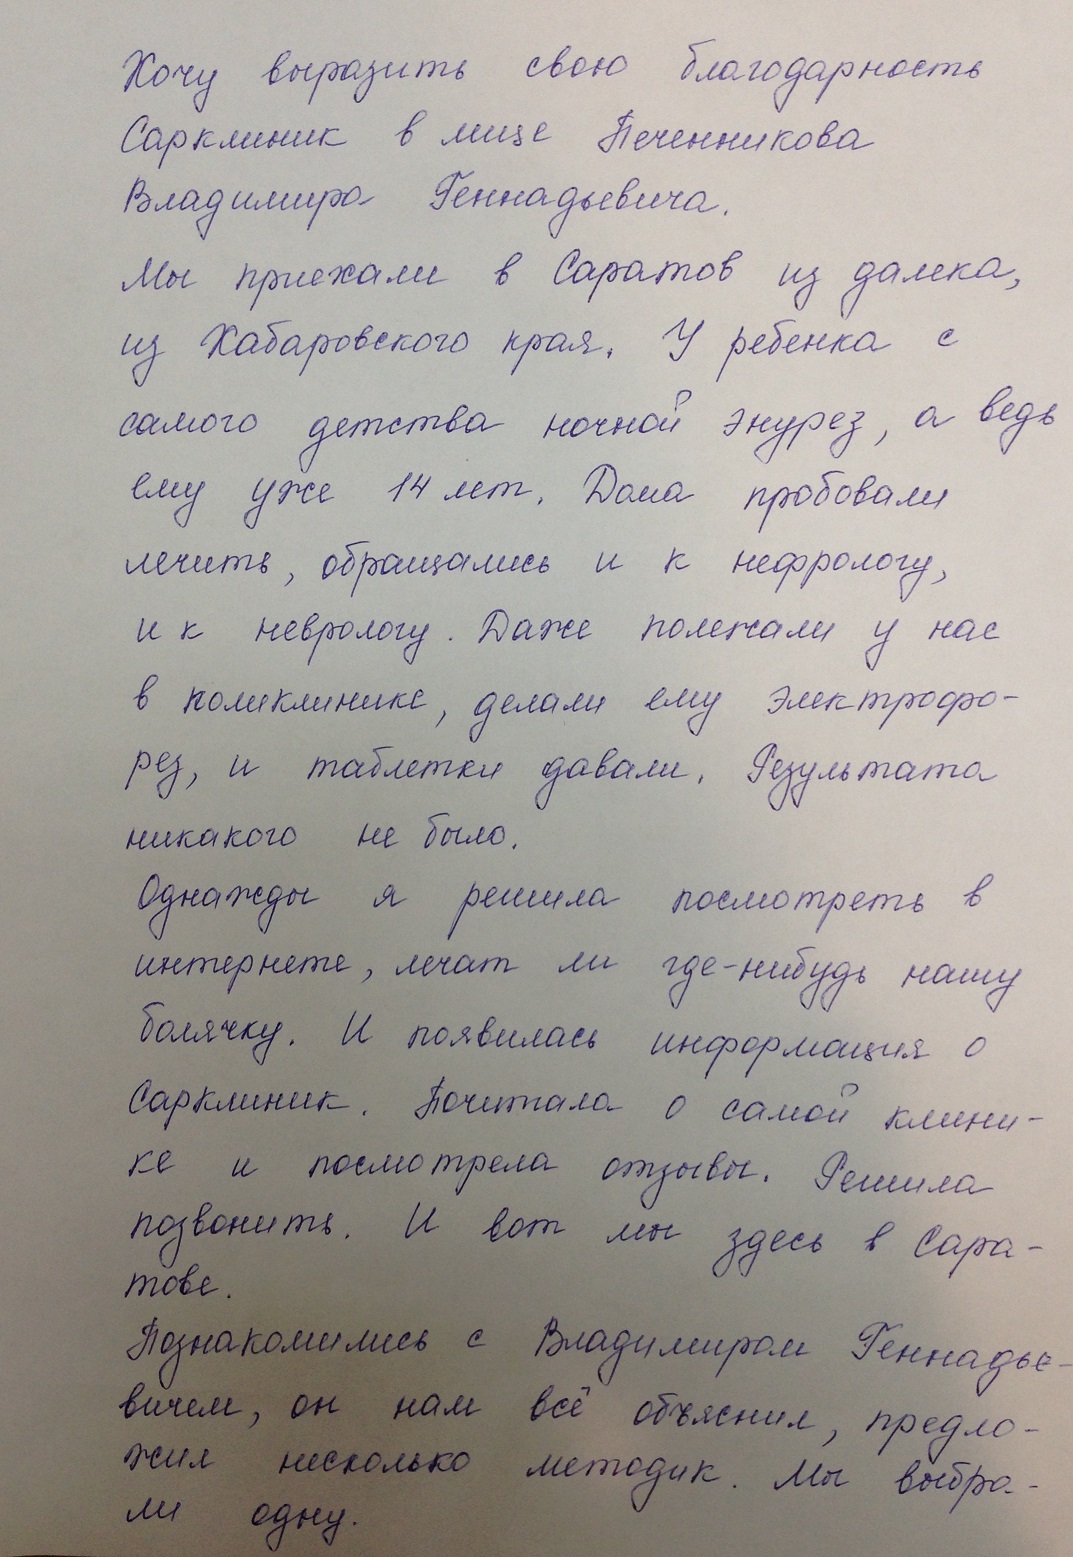 Хочу выразить свою благодарность
Сарклиник в лице Печенникова
Владимира Геннадьевича.
Мы приехали в Саратов из далека,
из Хабаровского края. У ребенка с
самого детства ночной энурез, а ведь
ему уже 14 лет. Дома пробовали
лечить, обращались и к нефрологу,
и к неврологу. Даже полежали у нас
в поликлинике, делали ему электрофо-
рез, и таблетки давали. Результата
никакого не было.
Однажды я решила посмотреть в
интернете, лечат ли где-нибудь нашу
болячку. И появилась информация о
Сарклиник. Почитала о самой клини-
ке и посмотрела отзывы. Решила
позвонить. И вот мы здесь в Сара-
тове.
Познакомились с Владимиром Геннадье-
вичем, он нам всё объяснил, предло-
жил несколько методик. Мы выбра-
ли одну.